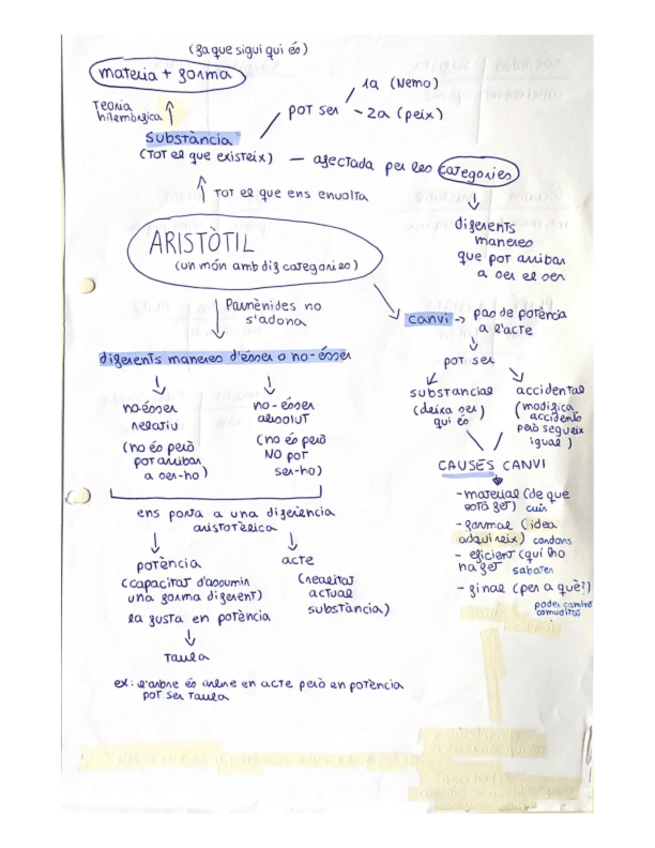 (fa que sigui qui és)
materia + forma
Teoria
hilemòrfica
Substància
(Tot el que existeix)
pot ser
1a (Nemo)
2a (peix)
afectada per les categories
Tot el que ens envolta
diferents
maneres
que pot arribar
a ser el ser
ARISTÒTIL
(un món amb dif categories)
Parmènides no
s'adona
canvi -> pas de potència
a l'acte
pot ser
substancial
(deixa ser)
qui és
accidental
(modifica
accidents
però segueix
igual)
diferents maneres d'ésser o no-ésser
no-ésser
relatiu
(no és però
pot arribar
a ser-ho)
no-ésser
absolut
(no és però
NO pot
ser-ho)
CAUSES CANVI
- material (de que
està fet) cuir
- formal (idea
adquireix) cordons
- eficient (qui ho
ha fet) sabater
- final (per a què?)
poder caminar
comoditat
ens porta a una diferència
aristotèlica
potència
(capacitat d'assumir
una forma diferent)
la fusta en potència
Taula
acte
(realitat
actual
substància)
ex: l'arbre és arbre en acte però en potència
pot ser Taula